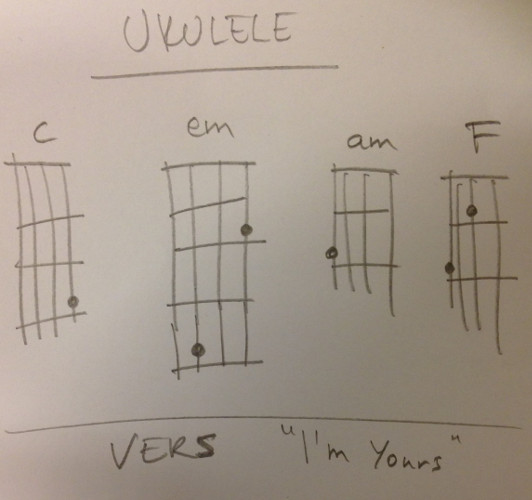 UKULELE
C em am F
VERS "I'm Yours"